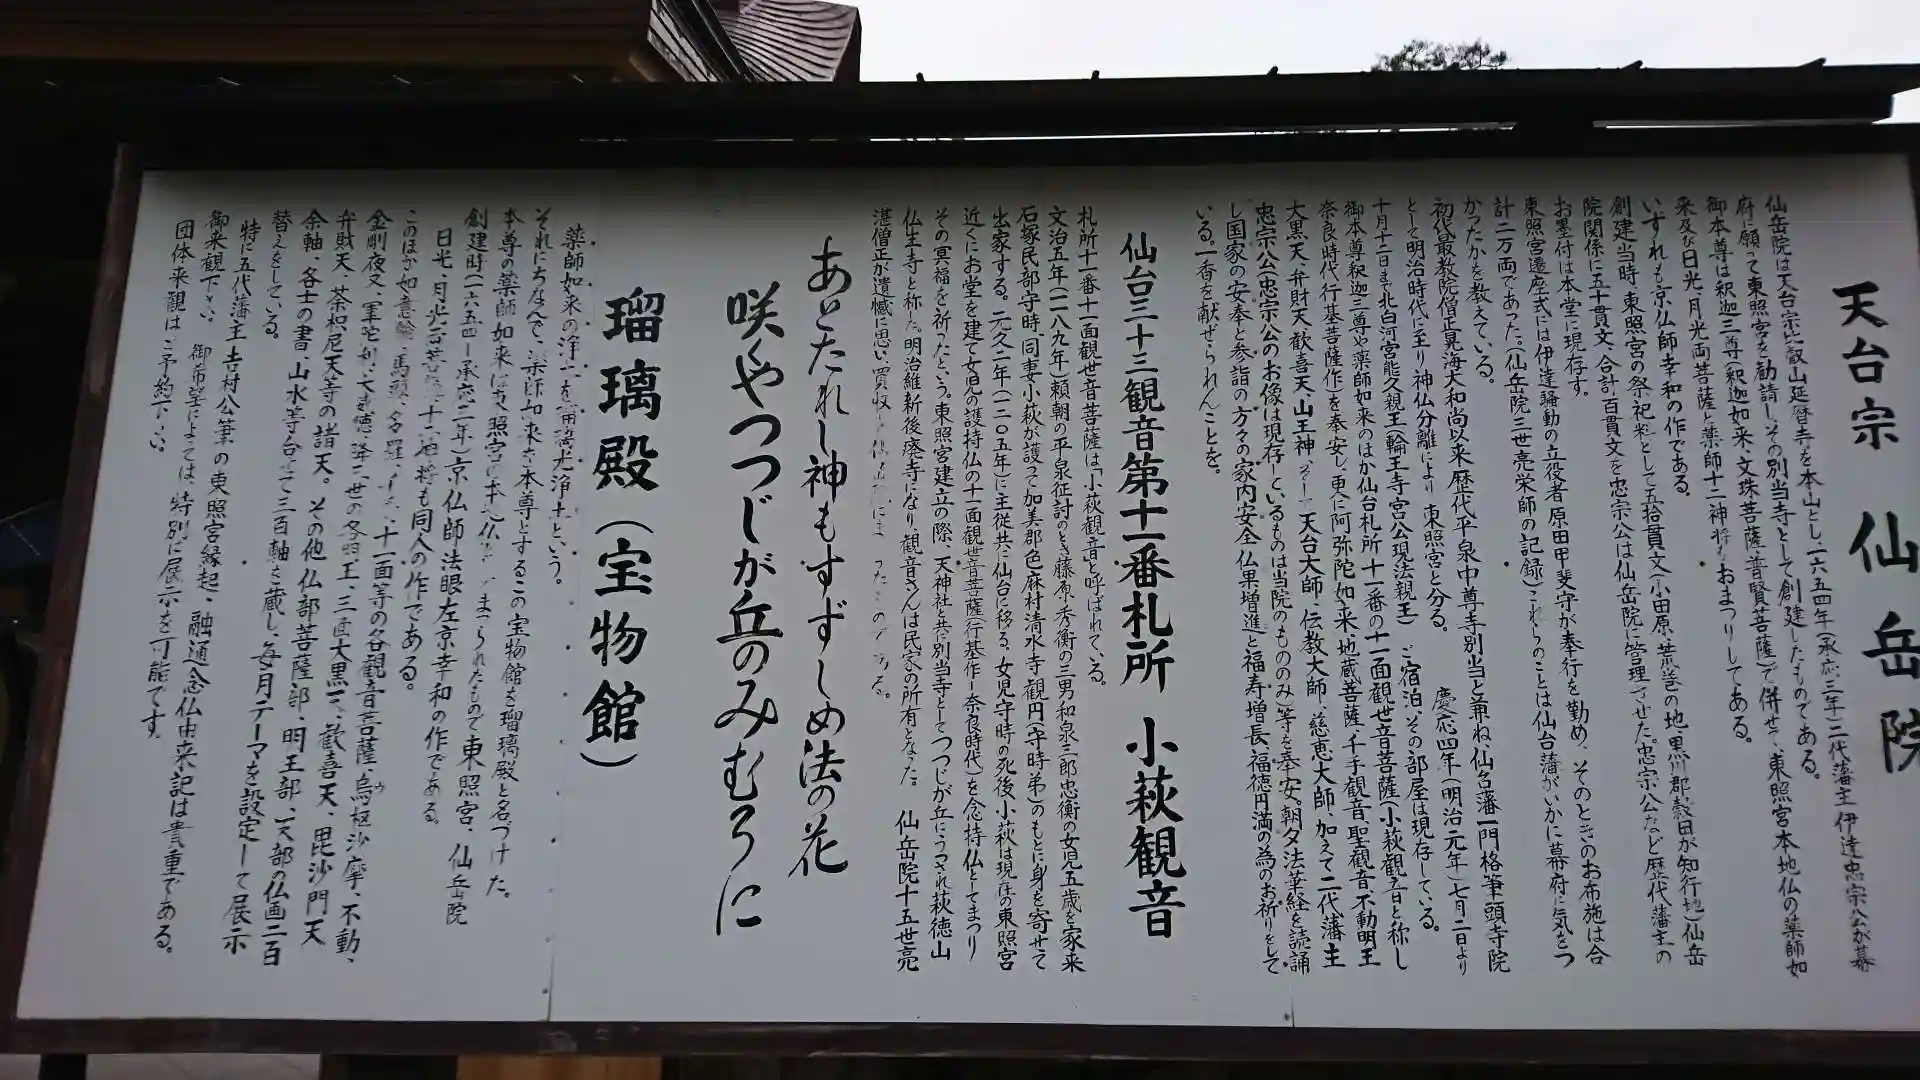 天台宗 仙岳院
仙岳院は天台宗比叡山延暦寺を本山とし、一六五四年(承応三年)二代藩主伊達忠宗公が幕
府に願って東照宮を勧請し、その別当寺として創建したものである。
御本尊は釈迦三尊(釈迦如来、文珠菩薩、普賢菩薩)で併せて、東照宮本地仏の薬師如
来及び日光、月光両菩薩と薬師十二神将がおまつりしてある。
いずれも京仏師幸和の作である。
創建当時、東照宮の祭祀料として五拾貫文(小田原、荒巻の地、黒川郡穀田が知行地)仙岳
院関係に五十貫文、合計百貫文を忠宗公は仙岳院に管理させた。忠宗公など歴代藩主の
お墨付は本堂に現存す。
東照宮遷座式には伊達騒動の立役者原田甲斐守が奉行を勤め、そのときのお布施は合
計二万両であった。(仙岳院三世亮栄師の記録)これらのことは仙台藩がいかに幕府に気をつ
かったかを教えている。
初代最教院僧正晃海大和尚以来歴代平泉中尊寺別当と兼ね、仙台藩一門格筆頭寺院
として明治時代に至り神仏分離により東照宮と分る。 慶応四年(明治元年)七月二日より
十月十二日まで北白河宮能久親王(輪王寺宮公現法親王)ご宿泊、その部屋は現存している。
御本尊釈迦三尊や薬師如来のほか仙台札所十一番の十一面観世音菩薩(小萩観音と称し
奈良時代行基菩薩作)を奉安し、更に阿弥陀如来、地蔵菩薩、千手観音、聖観音、不動明王
大黒天、弁財天、歓喜天、山王神 天台大師、伝教大師、慈恵大師、加えて二代藩主
忠宗公(忠宗公のお像は現存しているものは当院のもののみ)等を奉安。朝夕法華経を読誦
し国家の安泰と参詣の方々の家内安全、仏果増進と福寿増長、福徳円満の為のお祈りをして
いる。一香を献ぜられんことを。
仙台三十三観音第十一番札所 小萩観音
札所十一番十一面観世音菩薩は「小萩観音」と呼ばれている。
文治五年(一一八九年)頼朝の平泉征討のとき藤原秀衡の三男和泉三郎忠衡の女児五歳を家来
石塚民部守時、同妻小萩が護って加美郡色麻村清水寺観円(守時弟)のもとに身を寄せて
出家する。元久二年(一二〇五年)に主従共に仙台に移る。女児守時の死後小萩は現在の東照宮
近くにお堂を建て女児の護持仏の十一面観世音菩薩(行基作―奈良時代)を念持仏としてまつり
その冥福を祈ったという。東照宮建立の際、天神社と共に別当寺としてつつじが丘にうつされ萩徳山
仏生寺と称した。明治維新後廃寺になり観音さんは民家の所有となった。 仙岳院十五世亮
湛僧正が遺憾に思い買収し
あとたれし神もすずしめ法の花
咲くやつつじが丘のみむろに
瑠璃殿(宝物館)
薬師如来の浄土を瑠璃光浄土という。
それにちなんで、薬師如来を本尊とするこの宝物館を瑠璃殿と名づけた。
本尊の薬師如来は東照宮の本地仏 まつられたもので東照宮、仙岳院
創建時(一六五四―承応三年)京仏師法眼左京幸和の作である。
日光、月光両菩薩、十二神将も同人の作である。
このほか如意輪、馬頭、多羅、十一面等の各観音菩薩、烏枢沙摩、不動、
金剛夜叉、軍陀利、大威徳、降三世の各明王、三面大黒天、歓喜天、毘沙門天
弁財天、荼枳尼天等の諸天。その他仏部菩薩部、明王部、天部の仏画二百
余軸、各士の書、山水等合せて三百軸を蔵し、毎月テーマを設定して展示
替えをしている。
特に五代藩主吉村公筆の東照宮縁起、融通念仏由来記は貴重である。
御来観下さい。 御希望によっては、特別に展示を可能です。
団体来観はご予約下さい。